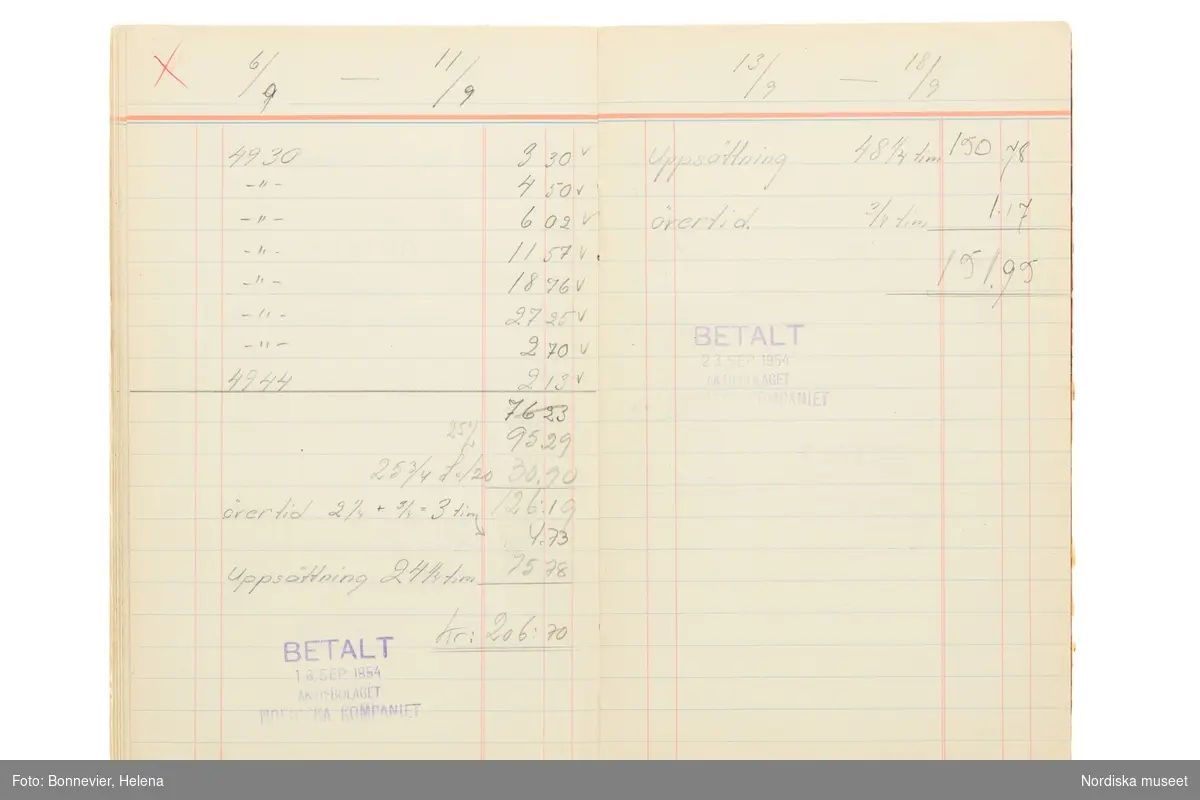 6/9 — 11/9
4930 3 30 v
-"- 4 50 v
-"- 6 02 v
-"- 11 57 v
-"- 18 76 v
-"- 27 25 v
-"- 2 70 v
4944 2 13 v
76 23
25% 95 29
25 3/4 30.90
övertid 2 1/4 + 3/4 = 3 tim 126:19
4.73
Uppsättning 24 1/4 tim 75 78
kr: 206:70
BETALT
SEP 1954
AKTIEBOLAGET
NORDISKA KOMPANIET
13/9 — 18/9
Uppsättning 48 1/4 tim 150.78
övertid. 3/4 tim 1.17
151.95
BETALT
23 SEP 1954
AKTIEBOLAGET
KOMPANIET
Foto: Bonnevier, Helena
Nordiska museet